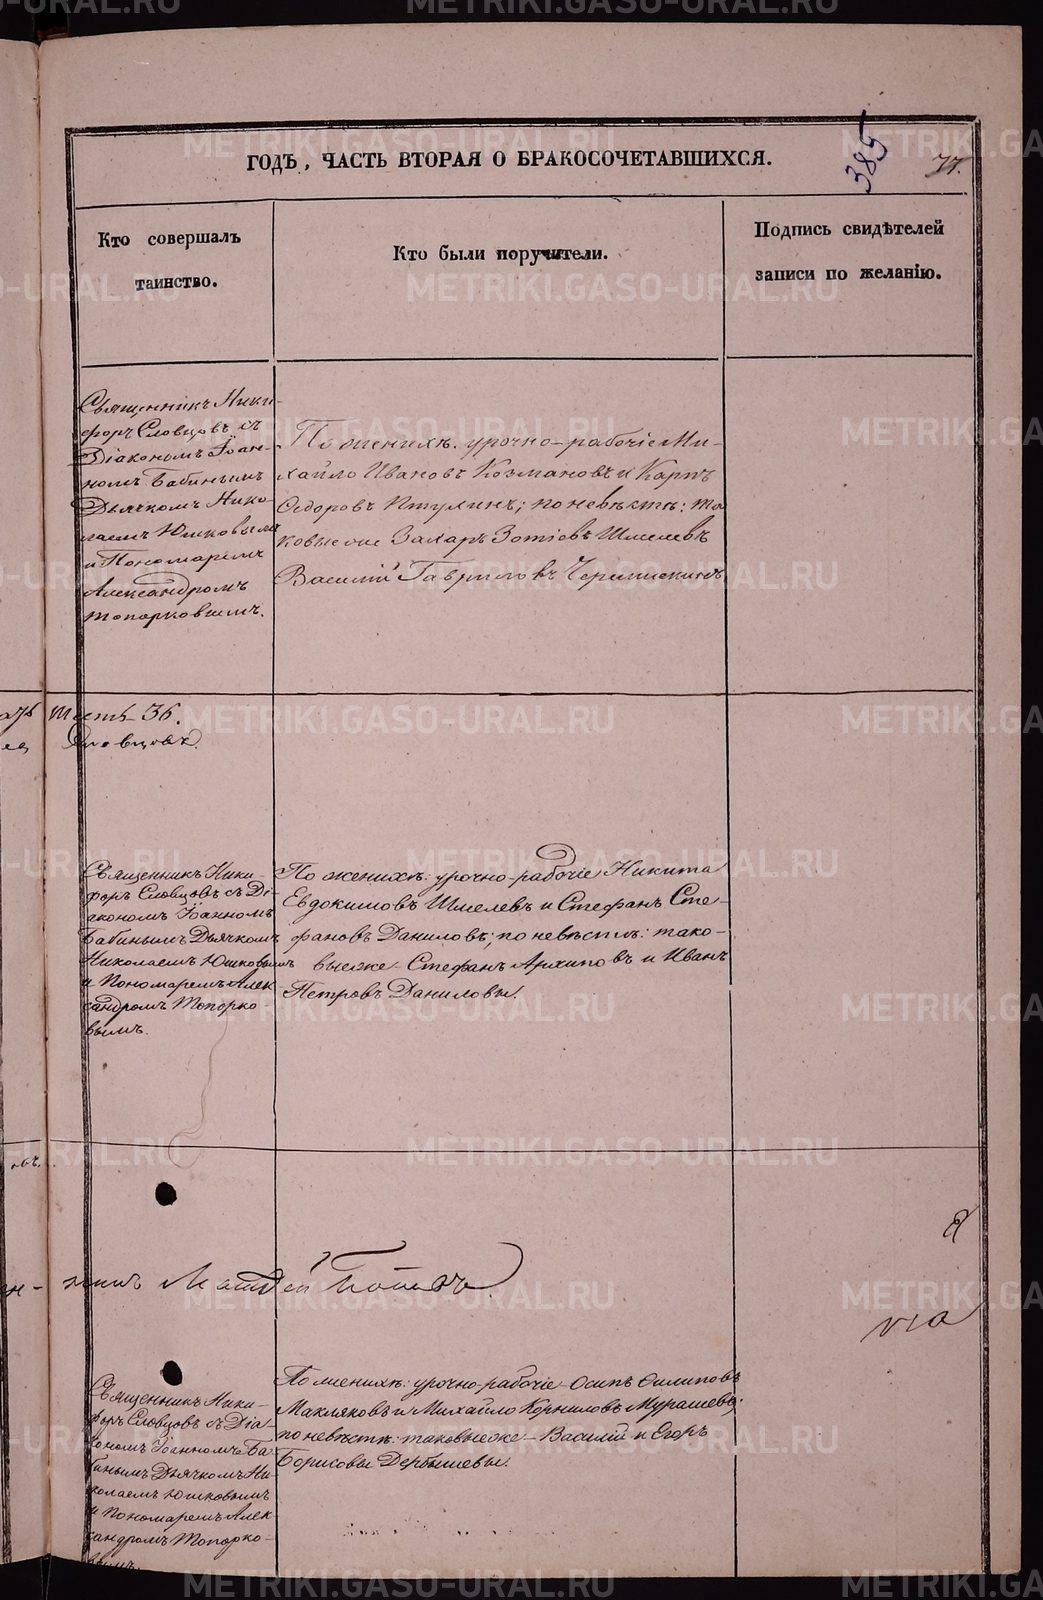 ГОДЪ, ЧАСТЬ ВТОРАЯ О БРАКОСОЧЕТАВШИХСЯ.
385
77.
Кто совершалъ
таинство.
Кто были поручители.
Подпись свидѣтелей
записи по желанію.
Священникъ Ники-
форъ Словцовъ съ
Діакономъ Іоан-
номъ Бабинымъ
Дьячкомъ Нико-
лаемъ Юшковымъ
и Пономаремъ
Александромъ
Топорковымъ.
По женихѣ: урочно-рабочіе Ми-
хайло Ивановъ Козмановъ и Карпъ
Ѳедоровъ Птулинъ; по невѣстѣ: та
ковые же Захаръ Зотіевъ Шмелевъ
Василій Гавриловъ Черемискинъ
шесть 36.
Словцовъ.
Священникъ Ники-
форъ Словцовъ съ Ді-
акономъ Іоанномъ
Бабинымъ Дьячкомъ
Николаемъ Юшковымъ
и Пономаремъ Алек
сандромъ Топорко-
вымъ.
По женихѣ: урочно-рабочіе Никита
Евдокимовъ Шмелевъ и Стефанъ Сте-
фановъ Даниловъ; по невѣстѣ: тако-
выеже Стефанъ Архиповъ и Иванъ
Петровъ Даниловы.
Священникъ Ники-
форъ Словцовъ съ Діа-
кономъ Іоанномъ Ба
бинымъ Дьячкомъ Ни
колаемъ Юшковымъ
и Пономаремъ Алек
сандромъ Топорко-
вымъ.
По женихѣ: урочно-рабочіе Осипъ Филиповъ
Макляковъ и Михайло Корниловъ Мурашевъ;
по невѣстѣ: таковыеже Василій и Егоръ
Борисовы Дербышевы.
METRIKI.GASO-URAL.RU